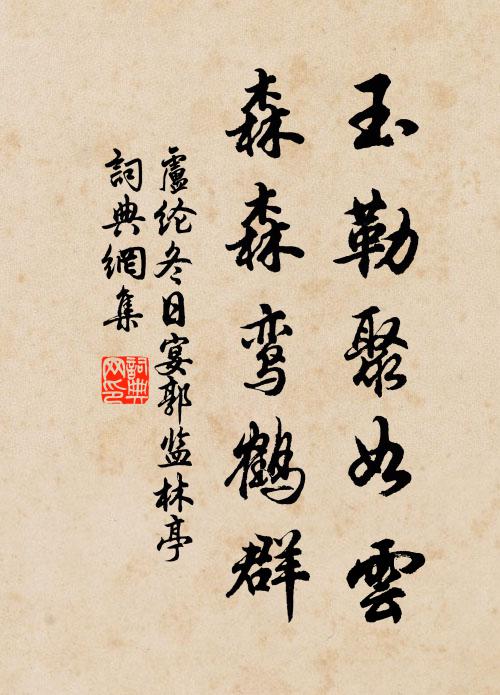 玉勒聚如雲
森森鸾鶴群
盧纶冬日宴郭监林亭
詞典網集
詞典網印